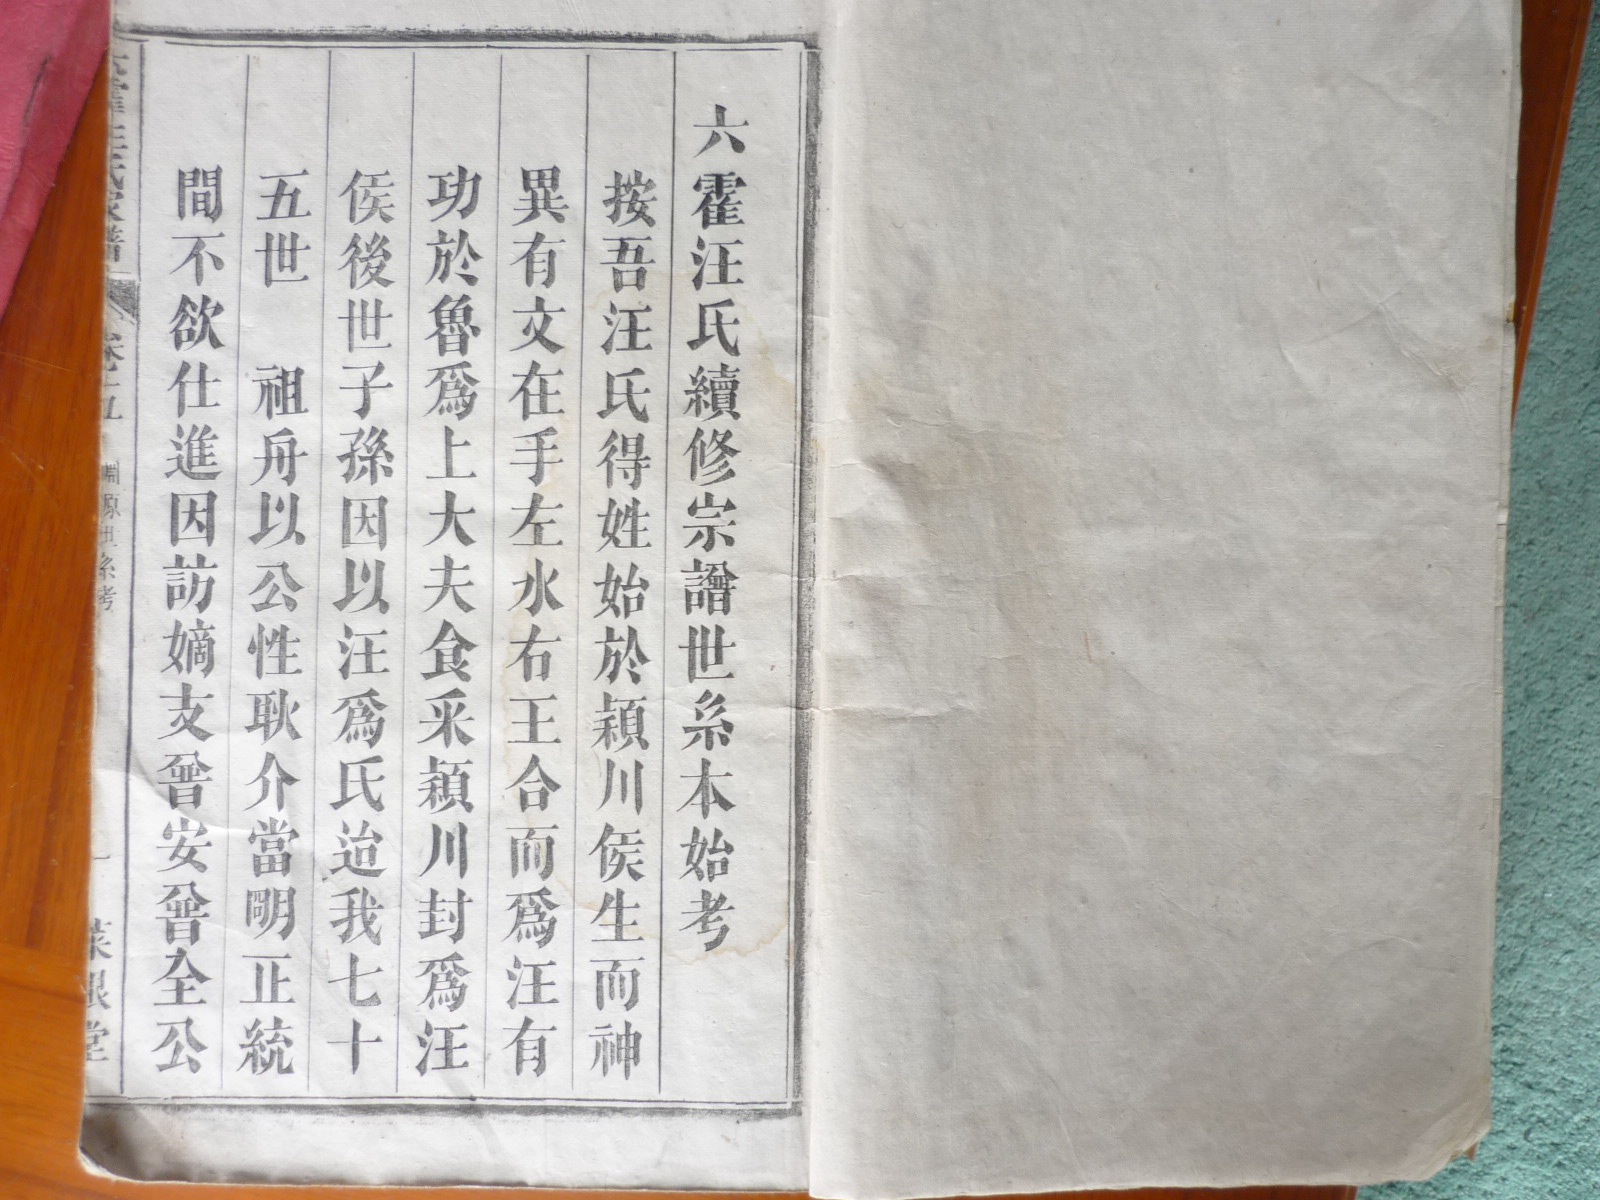 六霍汪氏續修宗譜世系本始考
按吾汪氏得姓始於潁川侯生而神
異有文在手左水右王合而爲汪有
功於魯爲上大夫食采潁川封爲汪
侯後世子孫因以汪爲氏迨我七十
五世 祖舟以公性耿介當明正統
間不欲仕進因訪嫡支曾安曾全公
六霍汪氏家譜 卷十五 淵源世系考 一 菜根堂